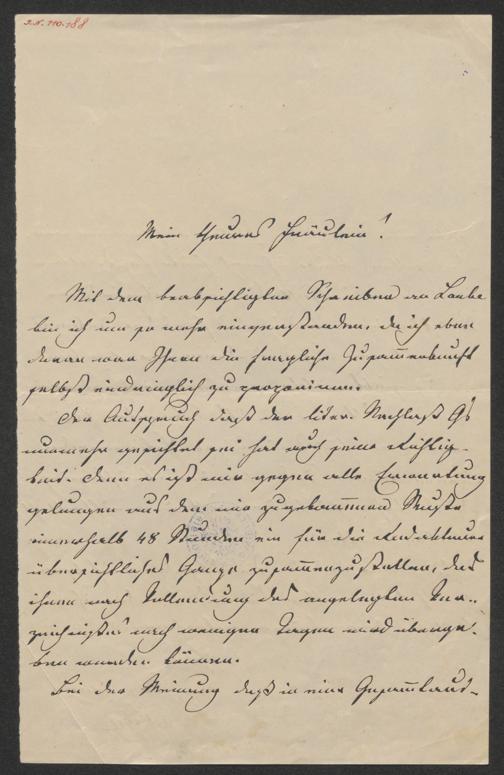 I.N. 110.188
Mein theures Fräulein!
Mit dem beabsichtigten Schreiben an Laube
bin ich um so mehr einverstanden, da ich eben
daran war Ihnen die fragliche Zusammenkunft
selbst eindringlich zu proponiren.
Der Ausspruch daß der liter. Nachlaß G's
nunmehr gesichtet sei hat auch seine Richtig-
keit. Denn es ist mir gegen alle Erwartung
gelungen aus dem mir zugekommenen Wuste
innerhalb 48 Stunden ein für die Redakteure
übersichtliches Ganze zusammenzustellen, das
ihnen nach Vollendung des angelegten Ver-
zeichnißes nach wenigen Tagen wird überge-
ben werden können.
Bei der Meinung daß in eine Gesammtaus-